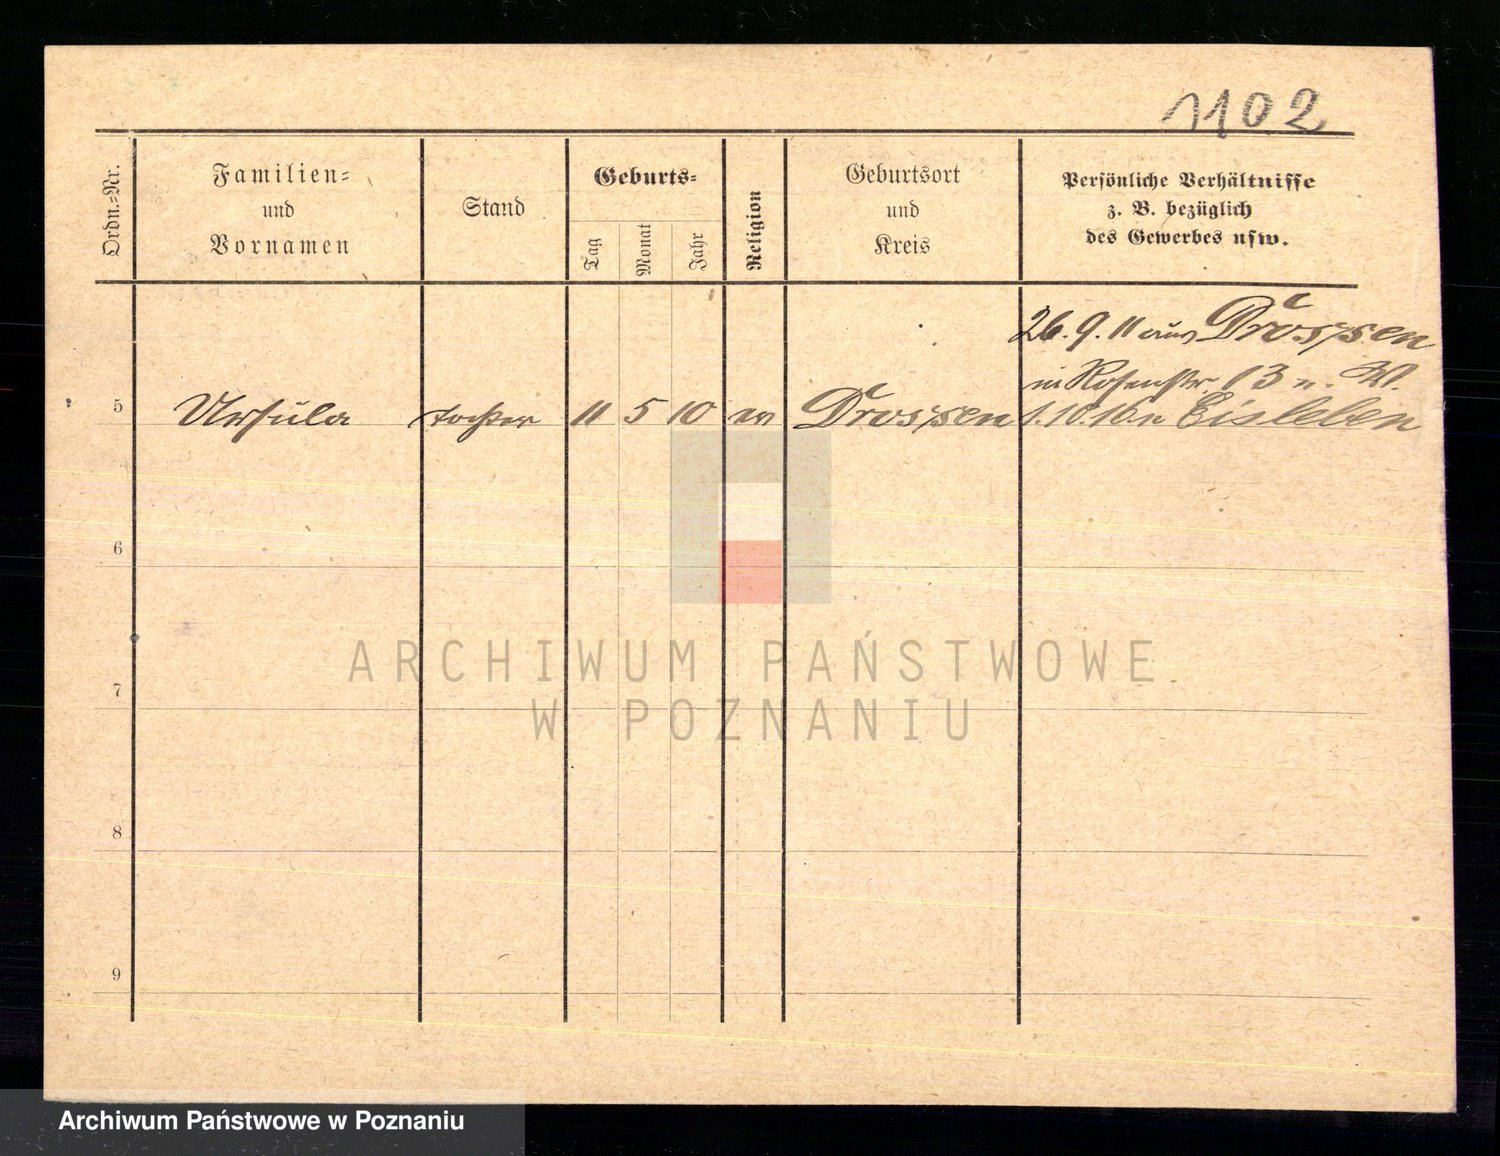 1102
Ordn.=Nr.
Familien=
und
Vornamen
Stand
Geburts=
Tag
Monat
Jahr
Religion
Geburtsort
und
Kreis
Persönliche Verhältnisse
z. B. bezüglich
des Gewerbes usw.
26. 9. 11 aus Drossen
in Rosenstr. 13 n. W.
5 Ursula Tochter 11 5 10 ev Drossen 1. 10. 16. n Eisleben
6
7
8
9
ARCHIWUM PAŃSTWOWE
W POZNANIU
Archiwum Państwowe w Poznaniu